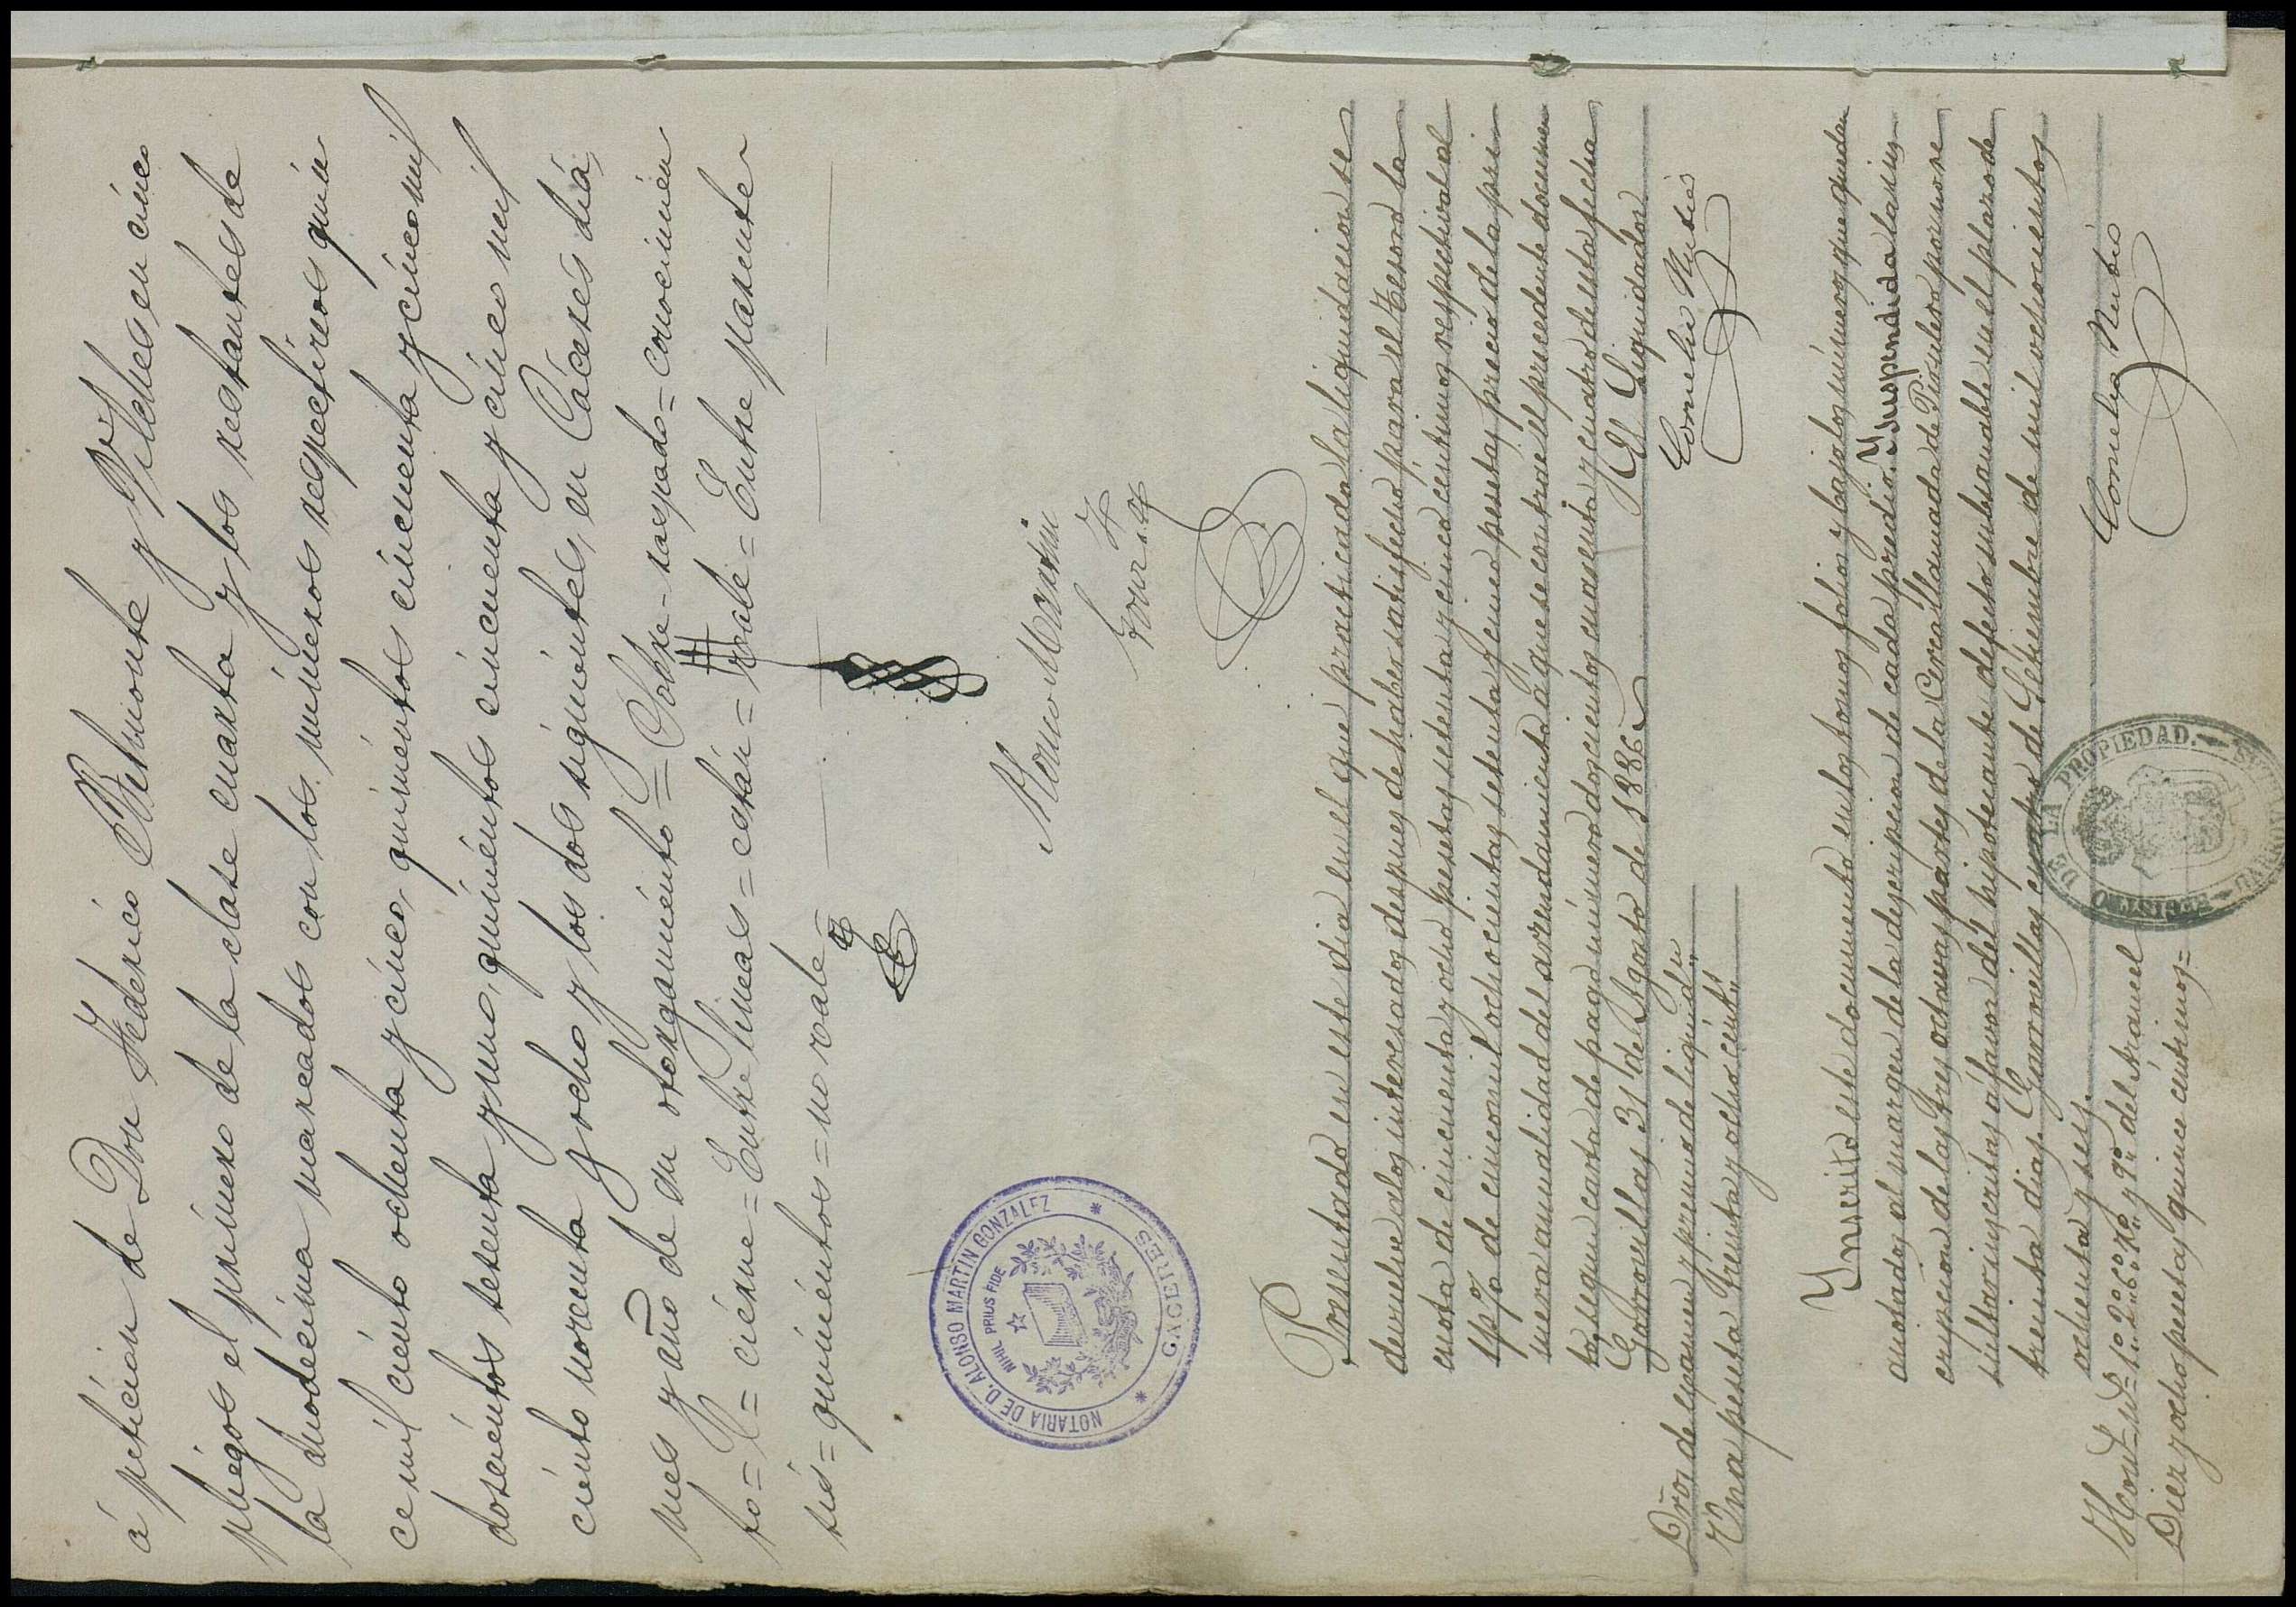 á petición de Don Federico Belmonte y Vilches, en cinco
pliegos el primero de la clase cuarta y los restantes de
la duodecima marcados con los números respectivos quin
ce mil ciento ochenta y cinco, quinientos cincuenta y cinco mil
doscientos setenta y uno, quinientos cincuenta y cinco mil
ciento noventa y ocho y los dos siguientes, en Cáceres dia,
mes y año de su otorgamiento = Sobre-raspado = conocimien
to = = cierne = Entre lineas = están = vale = Entre parente
sis = quinientos = no vale =
Alonso Martin
Gonz
NOTARIA DE D. ALONSO MARTIN GONZALEZ
NIHIL PRIUS FIDE
CACERES
Presentado en este dia en el que practicada la liquidacion se
devuelve alos interesados despues de haber satisfecho para el Tesoro la
cuota de cincuenta y ocho pesetas setenta y cinco céntimos respectiva al
1 p% de cinco mil ochocientas setenta y cinco pesetas precio de la pri
mera anualidad del arrendamiento á que se contrae el precedente documen
to segun carta de pago número doscientos cuarenta y cuatro de esta fecha
Garrovillas 31 de Agosto de 1886
El Liquidador
Cornelio
Dros de exámen y premio de liquidn
Una peseta treinta y ocho cénts
Inscrito este documento en los tomos folios y bajo los números que quedan
anotados al margen de la descripcion de cada predio. Suspendida la ins-
cripcion de las tres octavas partes de la Cerca llamada de por no re
sultar inscritas á favor del hipotecante defecto subsanable en el plazo de
treinta dias. Garrovillas cuatro de Setiembre de mil ochocientos
ochenta y seis.
Cornelio
Honors 1º 2º 6º y 9º del Arancel
Diez y ocho pesetas quince centimos =
REGISTRO DE LA PROPIEDAD.